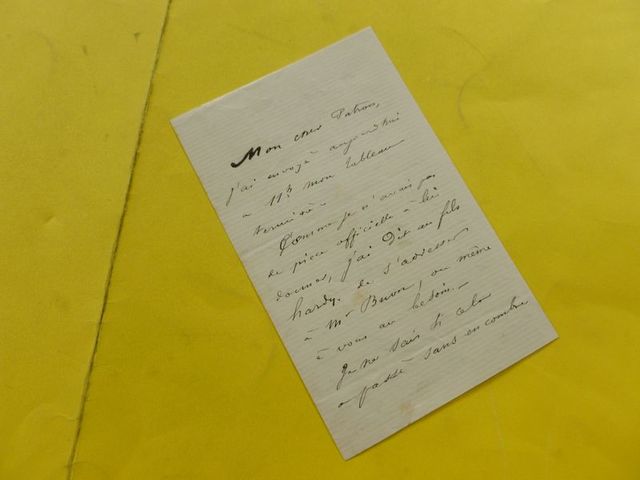 Mon cher Patron,
J'ai envoyé aujourd'hui
a 11h mon tableau
terminé.
Comme je n'avais pas
de piece officielle à lui
donner, j'ai dit au fils
hardy de s'adresser
à Mr Buon, ou même
à vous au besoin.
Je ne sais si cela
a passé sans encombre